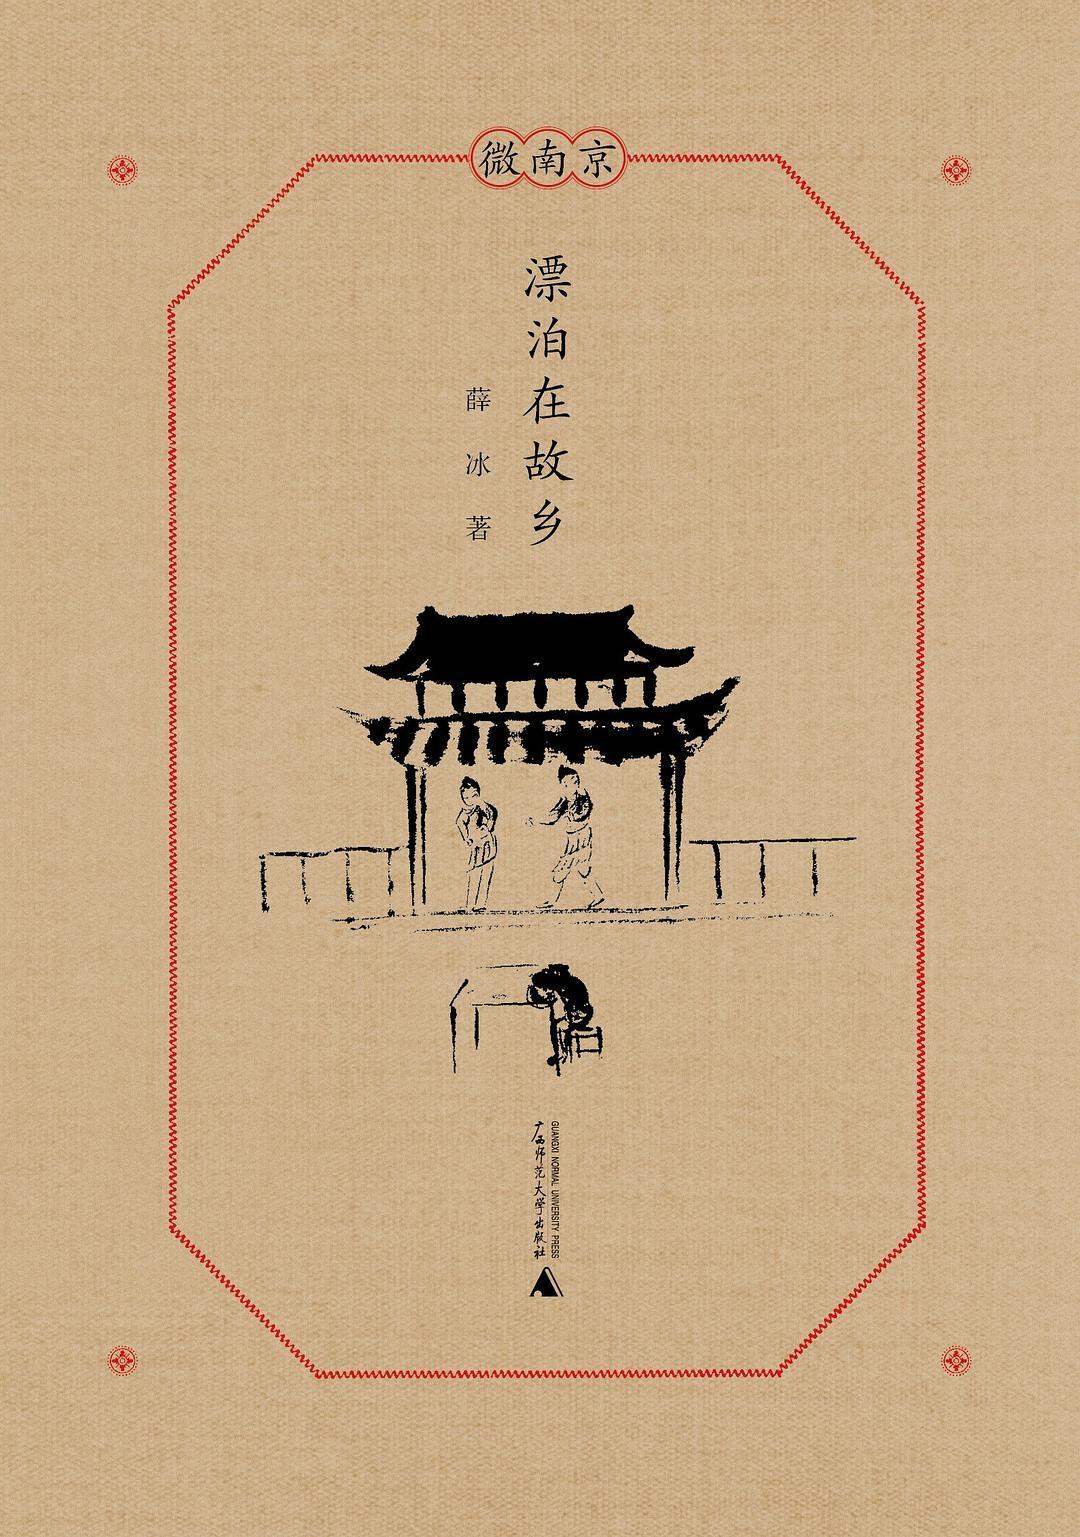 微南京
漂泊在故乡
薛冰 著
GUANGXI NORMAL UNIVERSITY PRESS
广西师范大学出版社